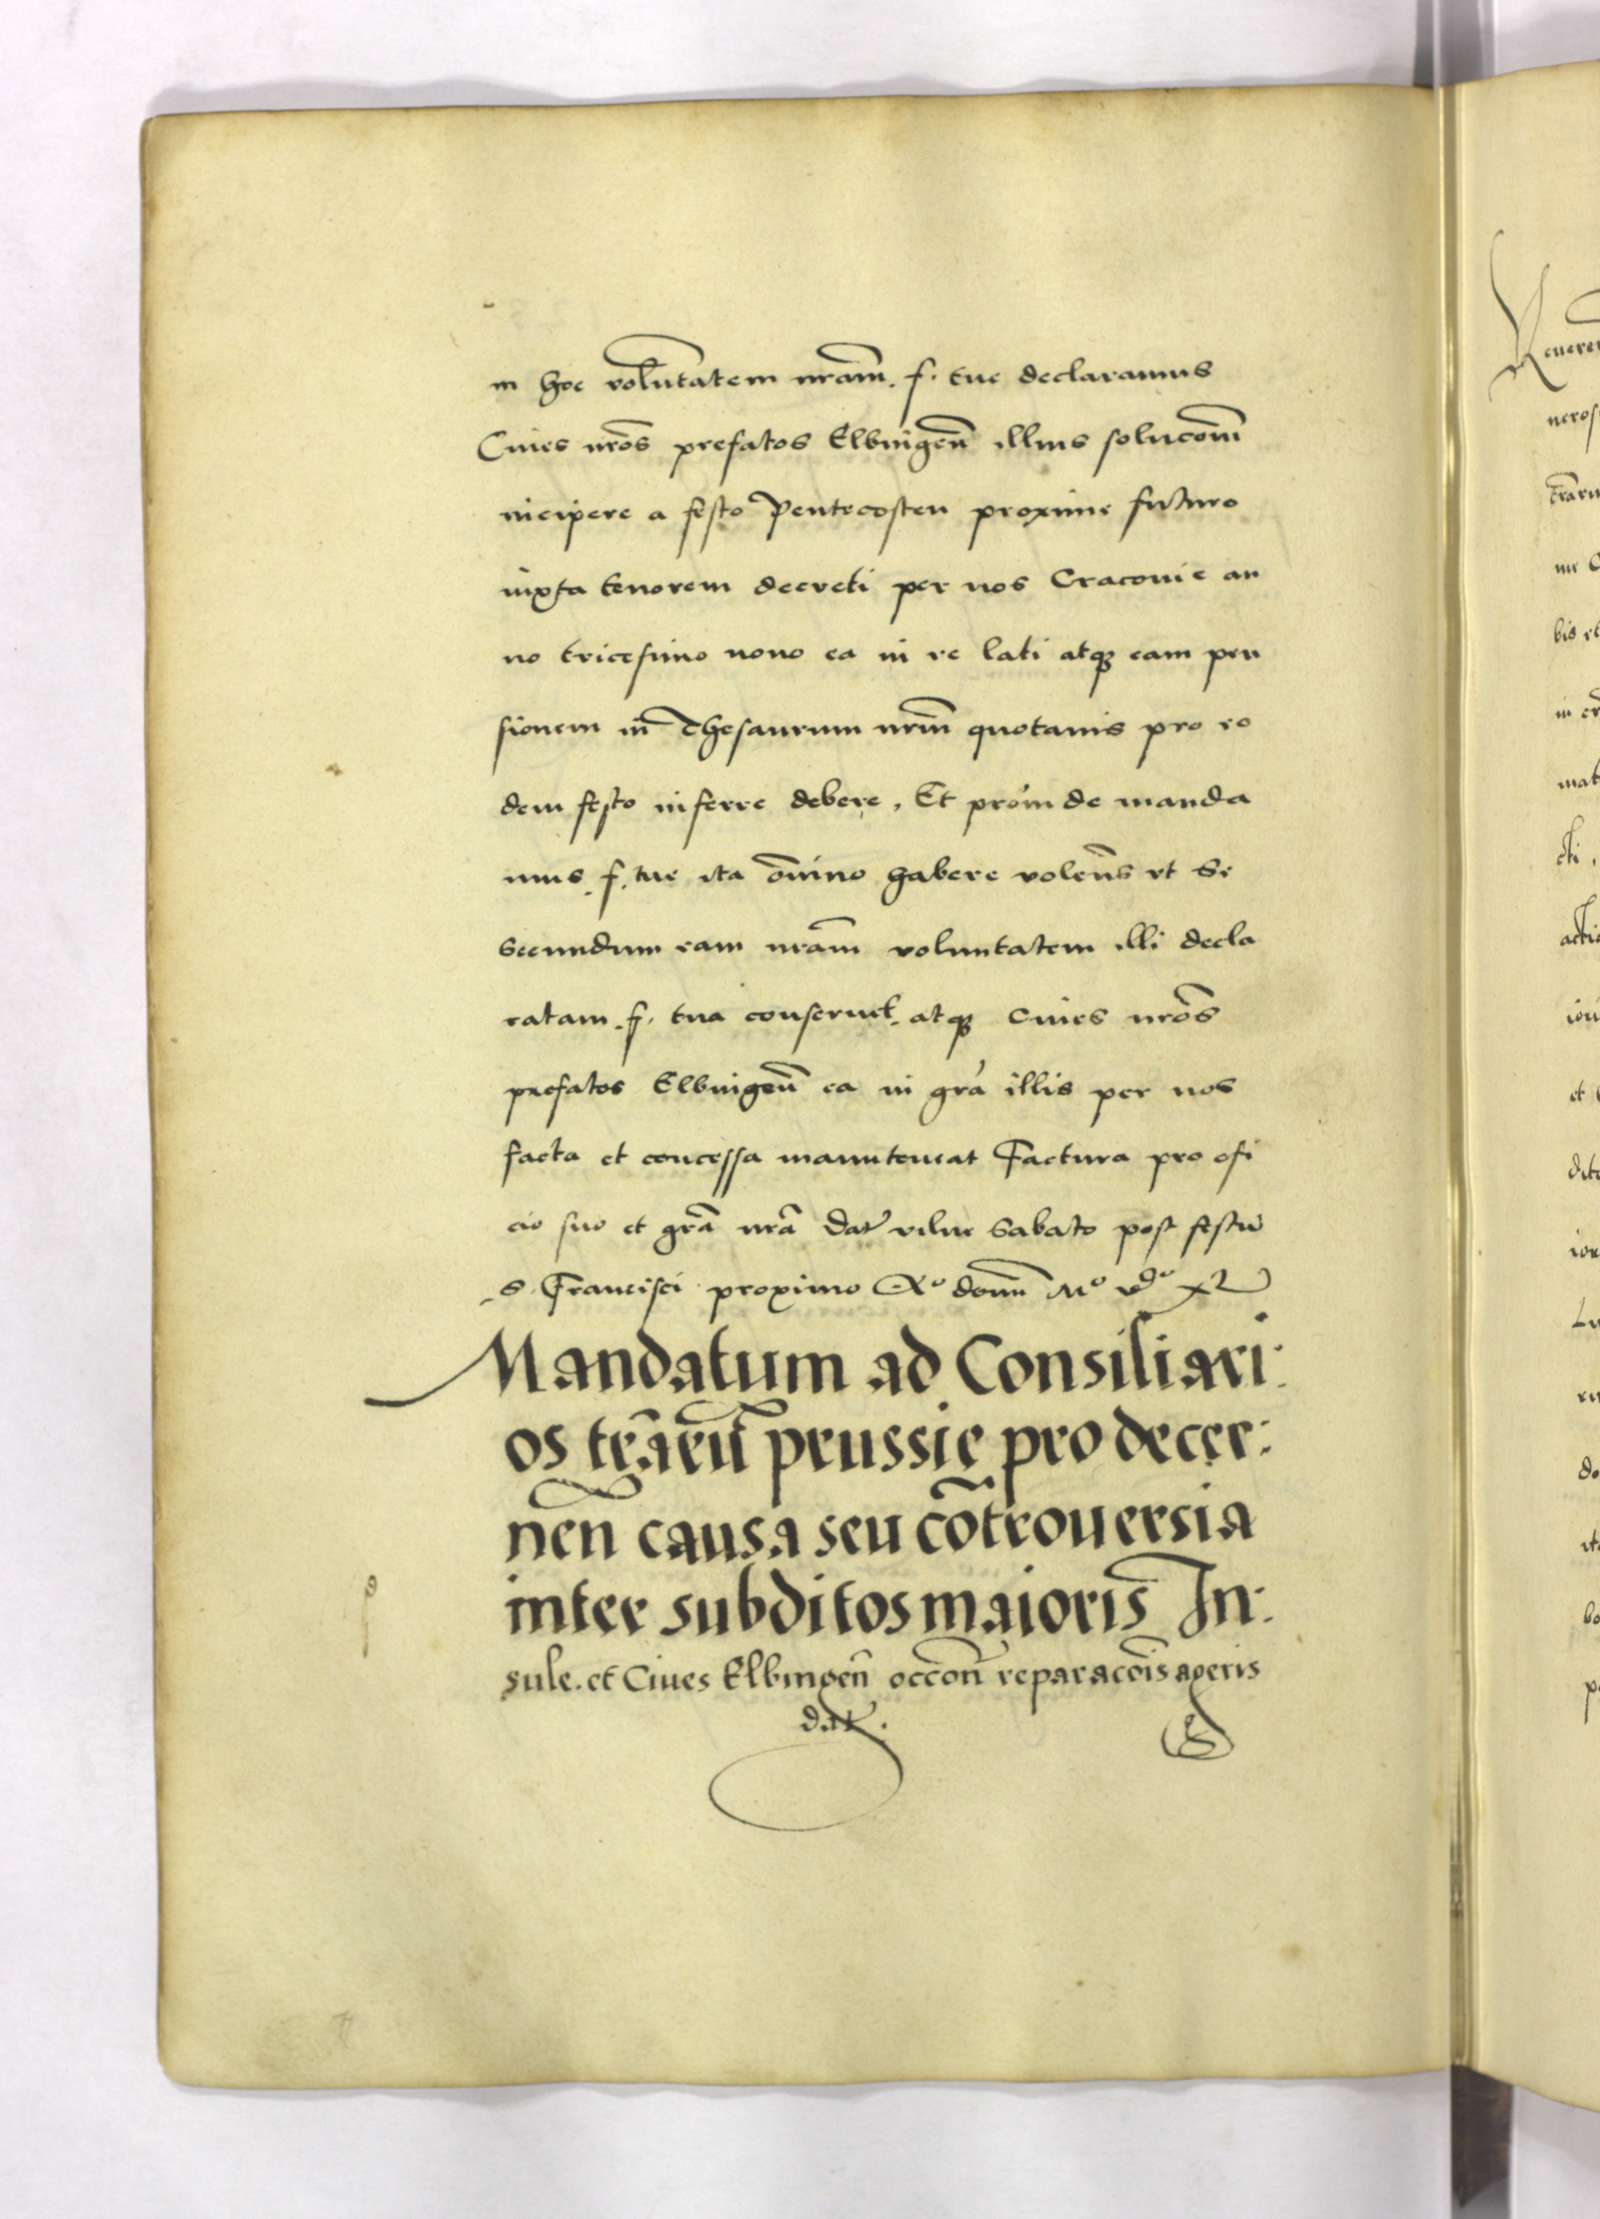 in hoc voluntatem nram̄. f. tue declaramus
Ciues nros̄ prefatos Elbingen̄ illius solucom̄
incipere a festo Pentecosten proxime futuro
iuxta tenorem decreti per nos Cracouie an
no tricesimo nono ea in re lati atq̨ eam pen
sionem in Thesaurum nrm̄ quotanis pro eo
dem festo inferre debere, Et proinde manda
mus. f. tue ita om̄ino habere volen̄s vt se
secundum eam nram̄ voluntatem illi decla
ratam. f. tua conseruet. atq̨ ciues nros̄
prefatos Elbingen̄ ea in gra illis per nos
facta et concessa manuteneat Factura pro ofi
cio suo et gra̅ nra̅ Dat̄ vilne Sabato post festū
S. Francisci proximo A° domn̄ M° vᵈ° XL
Mandatum ad Consiliari:
os trar̄u̅ prussie pro decer:
nen̄ causa seu co̅trouersia
inter subditos maioris In:
sule. et Ciues Elbingen̄ occon̄ reparacōis ageris
dat̄.
Reueren
neros
bis et
mat
cti,
actio
et
do